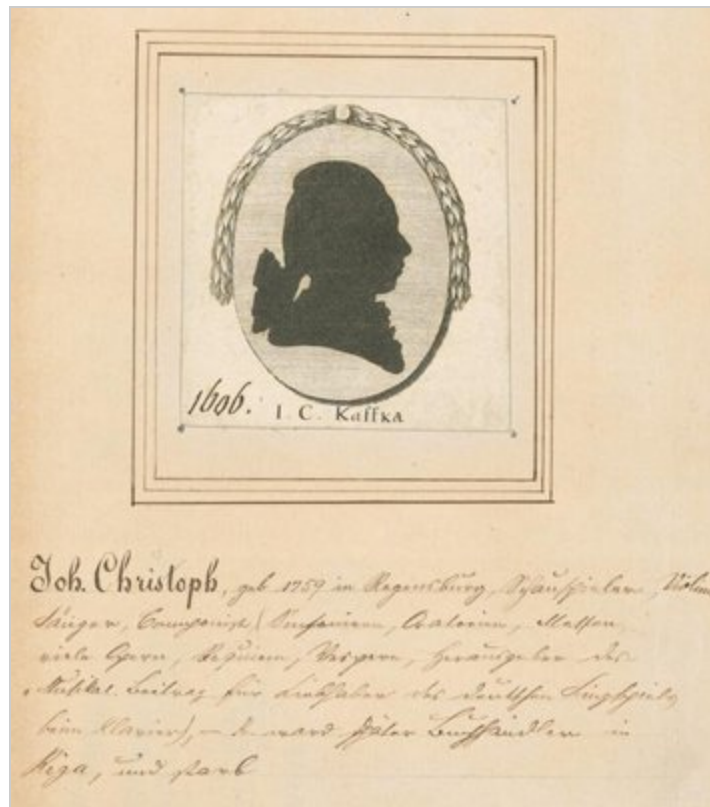 1606.
I. C. Kaffka
Joh. Christoph, geb 1759 in Regensburg, Schauspieler, Violin
Sänger, Componist (Sinfonieen, Oratorien, Messen,
viele Opern, Requiem, Vespern, Herausgeber des
Musikal. Beitrag für Liebhaber des deutschen Singspiels
beim Klavier), – er ward später Buchhändler in
Riga, und starb